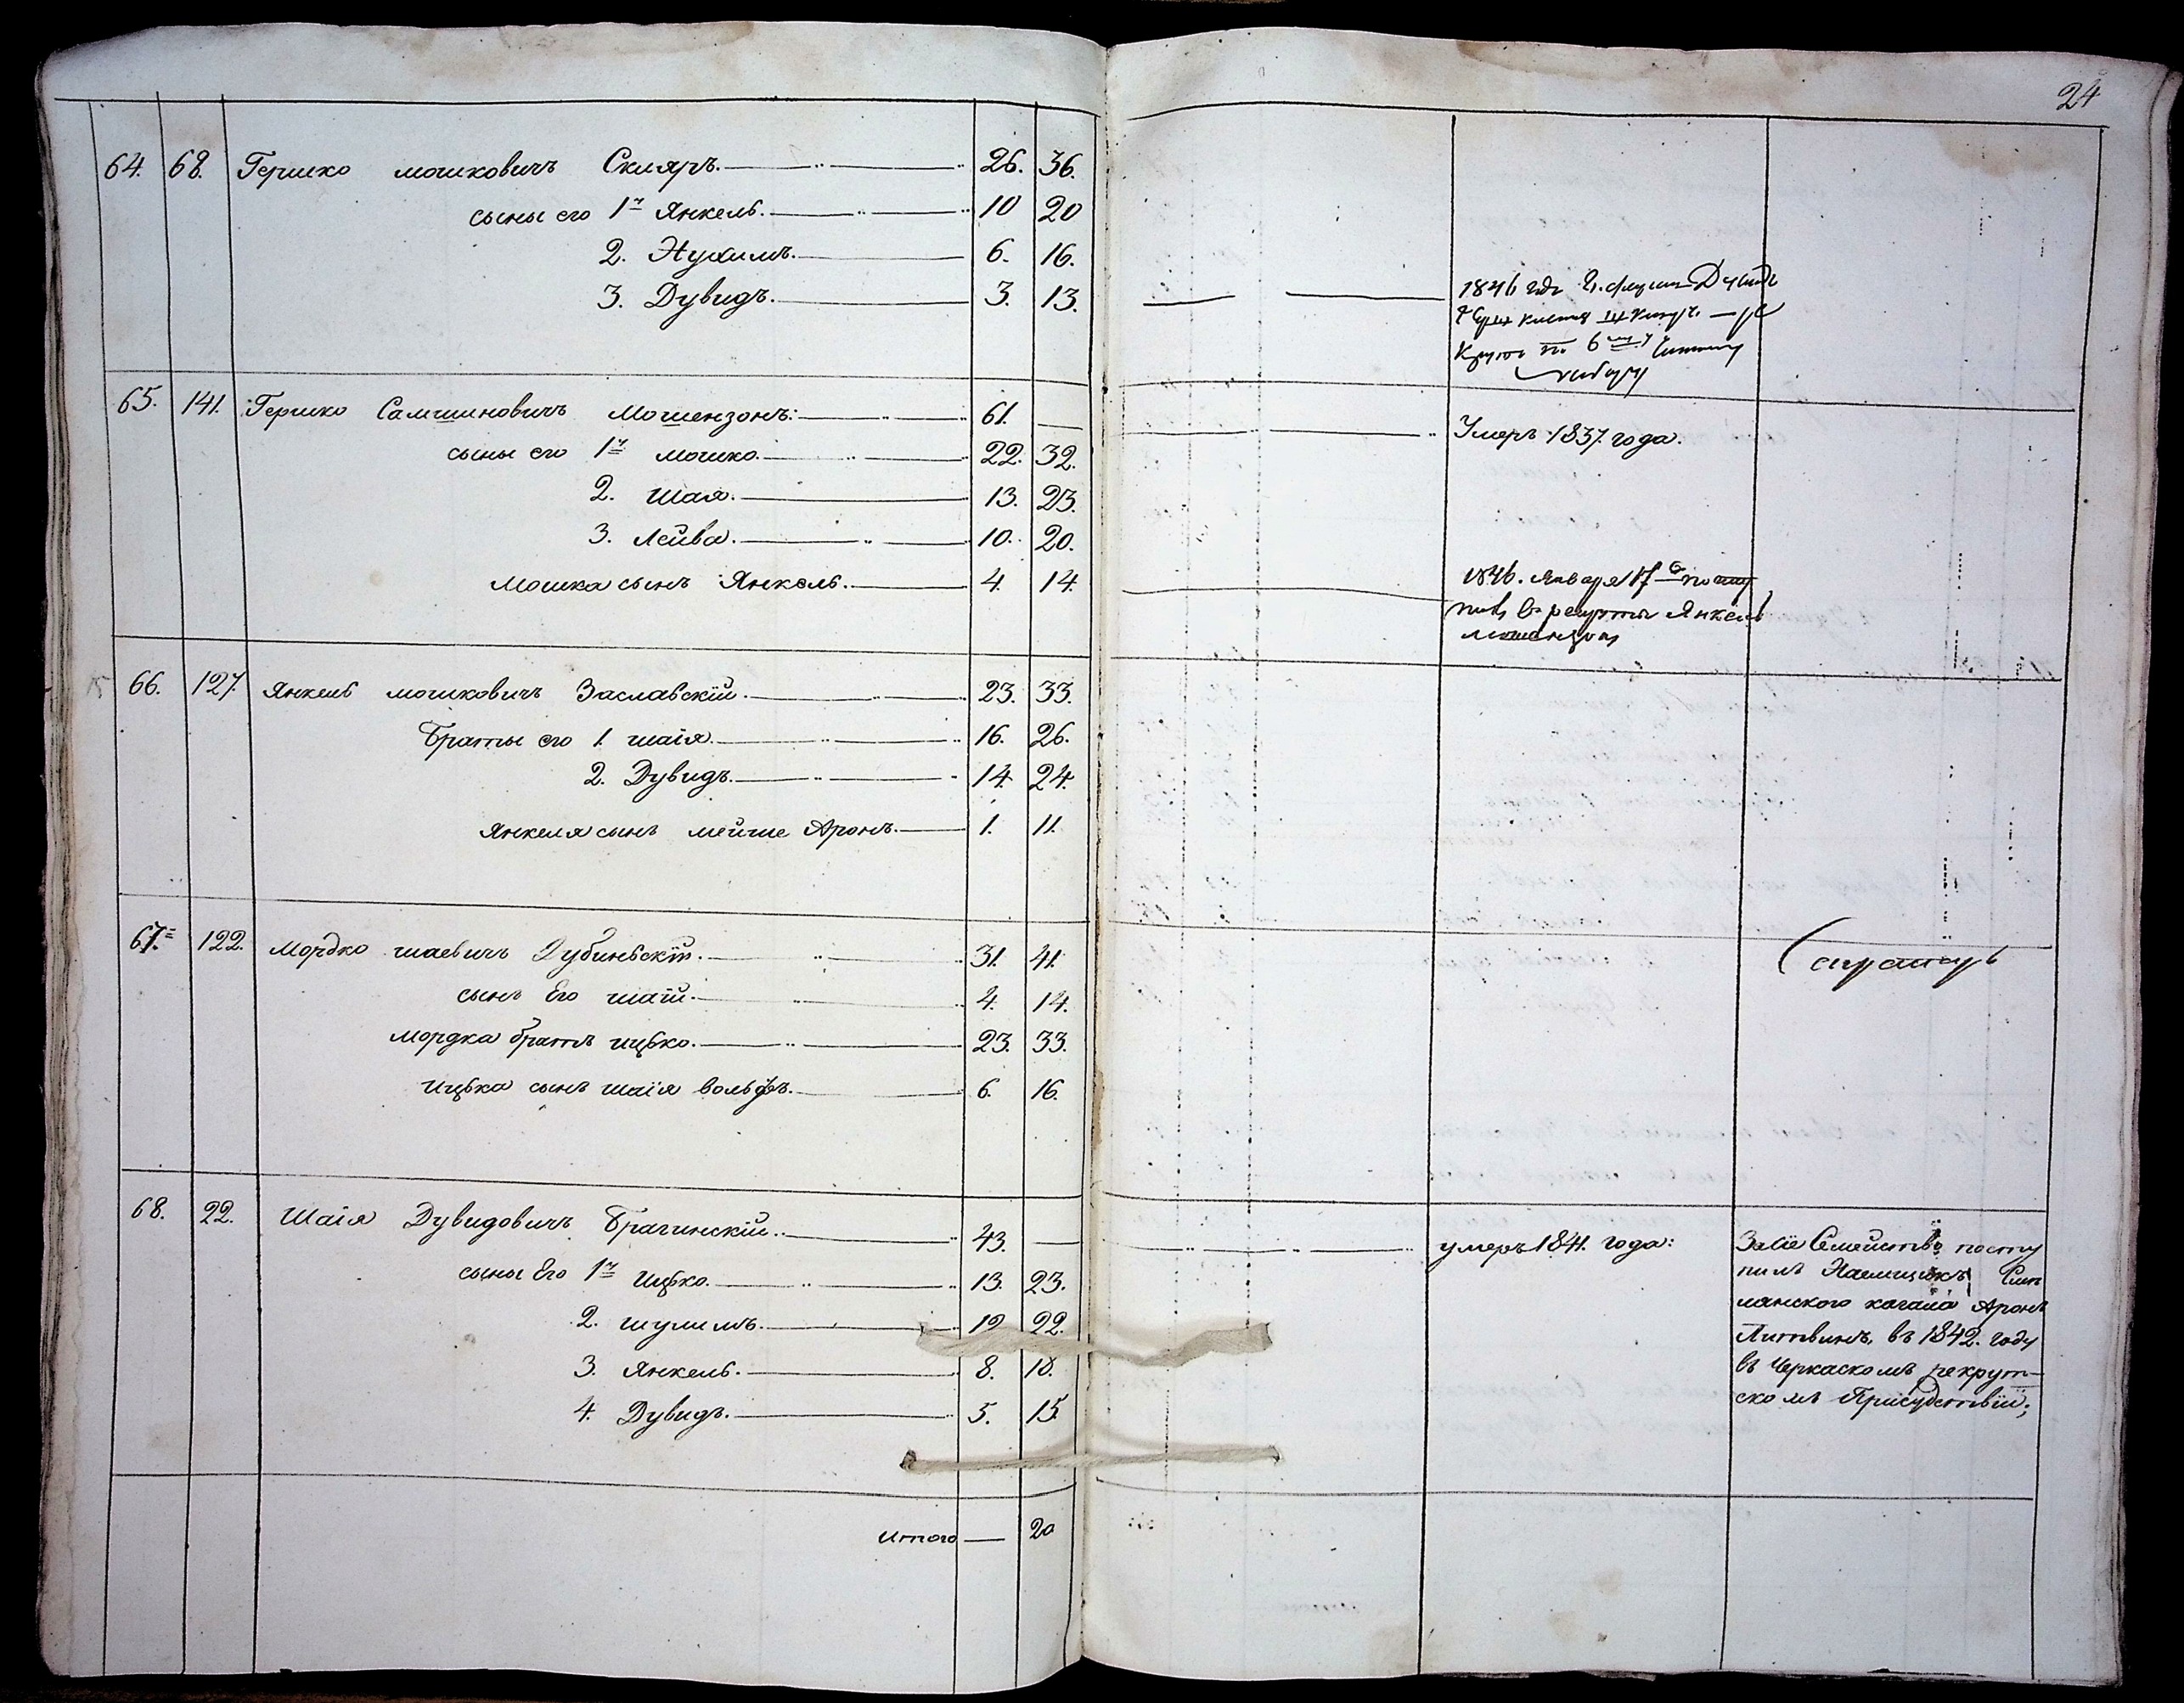 24
64. 68. Гершко мошковичъ Скляръ. 26. 36.
сыны его 1й Янкель. 10 20
2. Нухимъ. 6. 16.
3. Дувидъ. 3. 13.
1846
6
65. 141. Гершко Самшиновичъ Мошензонъ: 61. — Умеръ 1837. года.
сыны его 1й мошко. 22. 32.
2. шая. 13. 23.
3. Лейба. 10. 20.
Мошка сынъ Янкель. 4. 14.
1846. января 17го посту
въ рекруты Янкель
мошензон
66. 127. Янкель мошковичъ Заславскій. 23. 33.
Браты его 1. шаія. 16. 26.
2. Дувидъ. 14. 24.
Янкеля сынъ мейше Аронъ. 1. 11.
67. 122. Мордко шаевичъ Дубинскій. 31. 41.
сынъ Его шаій. 4. 14.
Мордка братъ ицько. 23. 33.
Ицька сынъ шаія вольфъ. 6. 16.
68. 22. Шаія Дувидовичъ Брагинскій. 43. — умеръ 1841. года:
сыны Его 1й Ицко. 13. 23.
2. шулимъ. 12 22.
3. Янкель. 8. 18.
4. Дувидъ. 5. 15.
За сіе Семейство посту
пилъ Наемщикъ
лянского кагала Аронъ
Литвинъ, въ 1842. году
въ Черкаскомъ рекрут-
скомъ Присудствіи;
Итого — 20